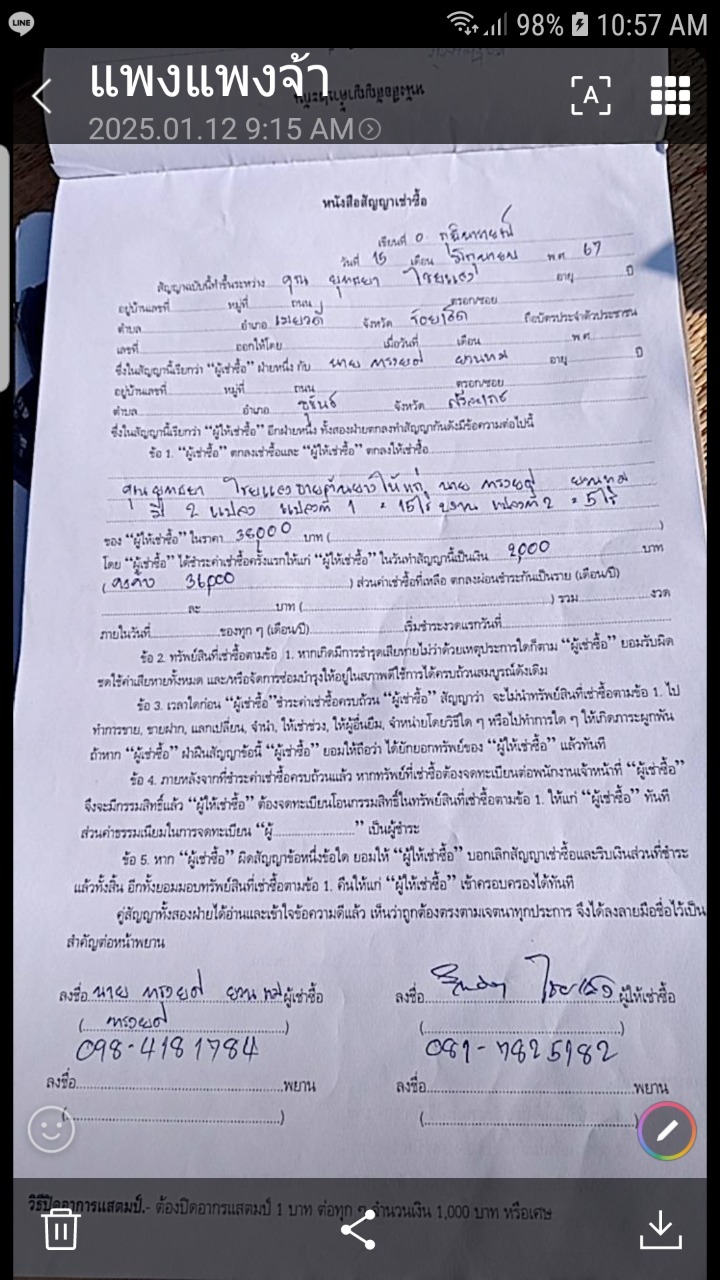 LINE
98% 10:57 AM
แพงแพงจ้า
2025.01.12 9:15 AM
A
หนังสือสัญญาค้ำประกัน
หนังสือสัญญาเช่าซื้อ
เขียนที่ อ.
วันที่ 15 เดือน มิถุนายน พ.ศ. 67
สัญญาฉบับนี้ทำขึ้นระหว่าง คุณ ยุทธยา ไชยแสง อายุ ปี
อยู่บ้านเลขที่ หมู่ที่ ถนน ตรอก/ซอย
ตำบล อำเภอ เมยวดี จังหวัด ร้อยเอ็ด ถือบัตรประจำตัวประชาชน
เลขที่ ออกให้โดย เมื่อวันที่ เดือน พ.ศ.
ซึ่งในสัญญานี้เรียกว่า “ผู้เช่าซื้อ” ฝ่ายหนึ่ง กับ นาย อายุ ปี
อยู่บ้านเลขที่ หมู่ที่ ถนน ตรอก/ซอย
ตำบล อำเภอ จังหวัด
ซึ่งในสัญญานี้เรียกว่า “ผู้ให้เช่าซื้อ” อีกฝ่ายหนึ่ง ทั้งสองฝ่ายตกลงทำสัญญากันดังมีข้อความต่อไปนี้
ข้อ 1. “ผู้เช่าซื้อ” ตกลงเช่าซื้อและ “ผู้ให้เช่าซื้อ” ตกลงให้เช่าซื้อ
คุณยุทธยา ไชยแสง ขายต้นยางให้แก่ นาย
มี 2 แปลง แปลงที่ 1 = 15ไร่ แปลงที่ 2 = 5ไร่
ของ “ผู้ให้เช่าซื้อ” ในราคา 38,000 บาท ( )
โดย “ผู้เช่าซื้อ” ได้ชำระค่าเช่าซื้อครั้งแรกให้แก่ “ผู้ให้เช่าซื้อ” ในวันทำสัญญานี้เป็นเงิน 2,000 บาท
( คงค้าง 36,000 ) ส่วนค่าเช่าซื้อที่เหลือ ตกลงผ่อนชำระกันเป็นราย (เดือน/ปี)
ละ บาท ( ) รวม งวด
ภายในวันที่ ของทุก ๆ (เดือน/ปี) เริ่มชำระงวดแรกวันที่
ข้อ 2. ทรัพย์สินที่เช่าซื้อตามข้อ 1. หากเกิดมีการชำรุดเสียหายไม่ว่าด้วยเหตุประการใดก็ตาม “ผู้เช่าซื้อ” ยอมรับผิด
ชดใช้ค่าเสียหายทั้งหมด และ/หรือจัดการซ่อมบำรุงให้อยู่ในสภาพดีใช้การได้ครบถ้วนสมบูรณ์ดังเดิม
ข้อ 3. เวลาใดก่อน “ผู้เช่าซื้อ”ชำระค่าเช่าซื้อครบถ้วน “ผู้เช่าซื้อ” สัญญาว่า จะไม่นำทรัพย์สินที่เช่าซื้อตามข้อ 1. ไป
ทำการขาย, ขายฝาก, แลกเปลี่ยน, จำนำ, ให้เช่าช่วง, ให้ผู้อื่นยืม, จำหน่ายโดยวิธีใด ๆ หรือไปทำการใด ๆ ให้เกิดภาระผูกพัน
ถ้าหาก “ผู้เช่าซื้อ” ฝ่าฝืนสัญญาข้อนี้ “ผู้เช่าซื้อ” ยอมให้ถือว่า ได้ยักยอกทรัพย์ของ “ผู้ให้เช่าซื้อ” แล้วทันที
ข้อ 4. ภายหลังจากที่ชำระค่าเช่าซื้อครบถ้วนแล้ว หากทรัพย์ที่เช่าซื้อต้องจดทะเบียนต่อพนักงานเจ้าหน้าที่ “ผู้เช่าซื้อ”
จึงจะมีกรรมสิทธิ์แล้ว “ผู้ให้เช่าซื้อ” ต้องจดทะเบียนโอนกรรมสิทธิ์ในทรัพย์สินที่เช่าซื้อตามข้อ 1. ให้แก่ “ผู้เช่าซื้อ” ทันที
ส่วนค่าธรรมเนียมในการจดทะเบียน “ผู้ ” เป็นผู้ชำระ
ข้อ 5. หาก “ผู้เช่าซื้อ” ผิดสัญญาข้อหนึ่งข้อใด ยอมให้ “ผู้ให้เช่าซื้อ” บอกเลิกสัญญาเช่าซื้อและริบเงินส่วนที่ชำระ
แล้วทั้งสิ้น อีกทั้งยอมมอบทรัพย์สินที่เช่าซื้อตามข้อ 1. คืนให้แก่ “ผู้ให้เช่าซื้อ” เข้าครอบครองได้ทันที
คู่สัญญาทั้งสองฝ่ายได้อ่านและเข้าใจข้อความดีแล้ว เห็นว่าถูกต้องตรงตามเจตนาทุกประการ จึงได้ลงลายมือชื่อไว้เป็น
สำคัญต่อหน้าพยาน
ลงชื่อ นาย ผู้เช่าซื้อ ลงชื่อ ไชยแสง ผู้ให้เช่าซื้อ
098-4181784 081-7825182
ลงชื่อ พยาน ลงชื่อ พยาน
วิธีปิดอากรแสตมป์.- ต้องปิดอากรแสตมป์ 1 บาท ต่อทุก ๆ จำนวนเงิน 1,000 บาท หรือเศษ